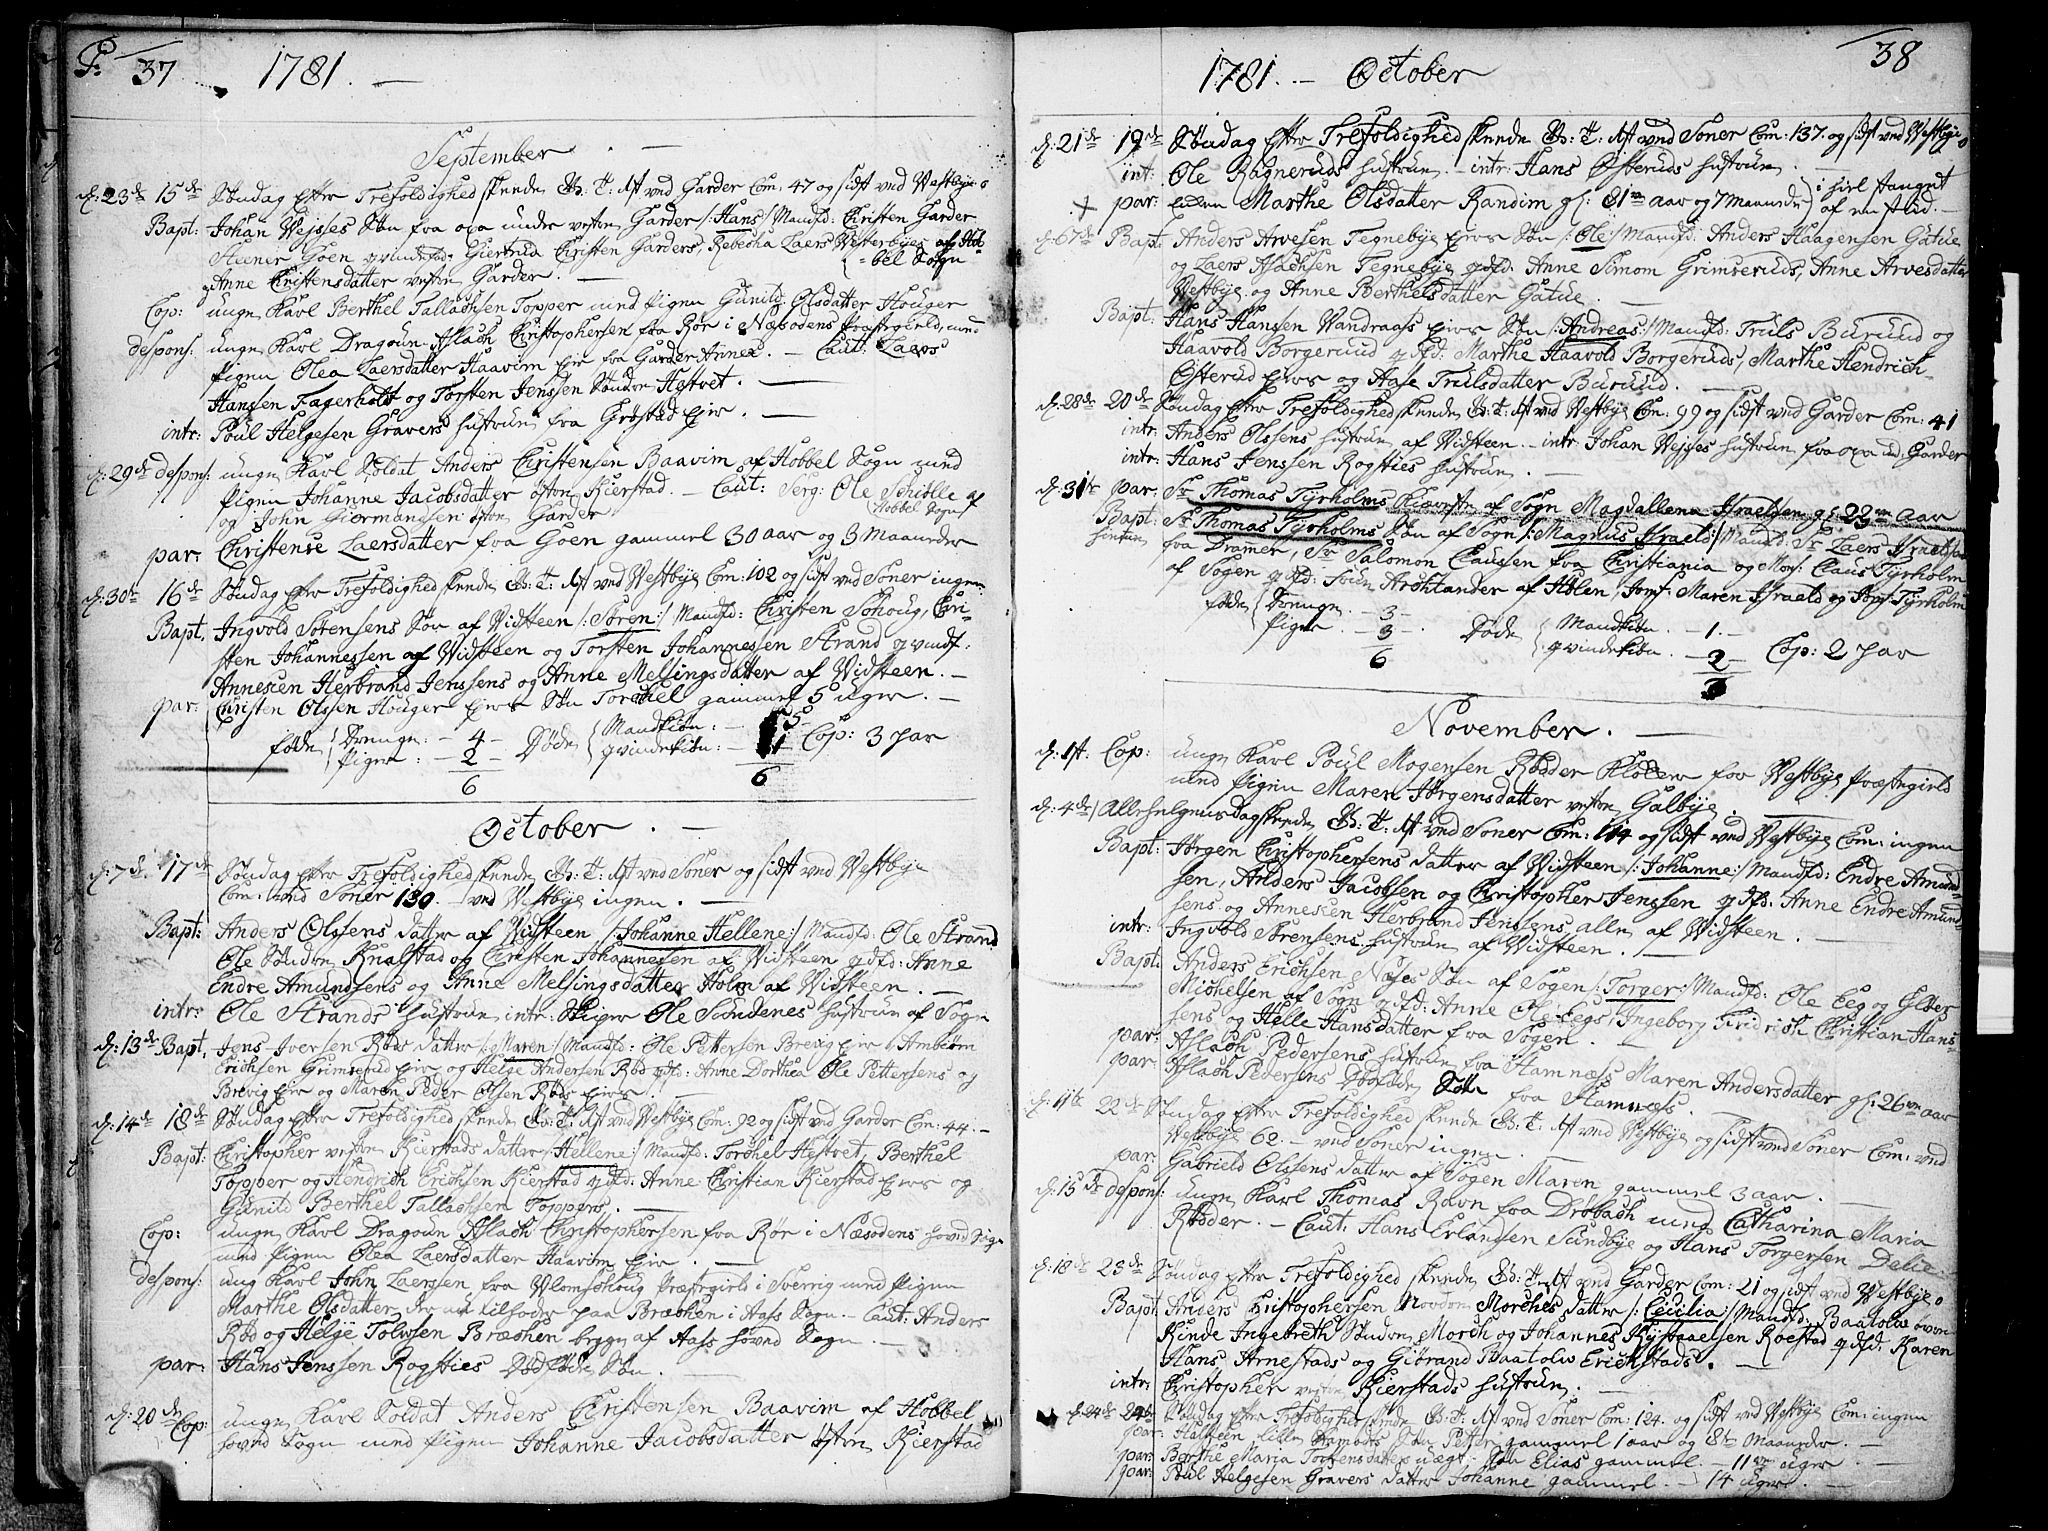 P. 37 1781. —
September
d: 23de 15de Søndag efter Trefoldighed skeede Gs: T: 1st ved Garder Com: 47 og sidst ved Vestbye 0
Bapt: Johan Vejses Søn fra oxa under vesten Garder /: Hans :/ Mandfd: Christen Garder
Steener Goen qvindefd: Giertrud Christen Garders, Rebecha Laers Vesterbyes af Hob-
bel Sogn
og Anne Christensdatter vesten Garder. —
Cop: unge Karl Berthel Tallachsen Topper med Pigen Gunild Olsdatter Houger
despons: unge Karl Dragoun Aslach Christophersen fra Rør i Næsodens Præstegield, med
Pigen Olea Laersdatter Haavim Eje fra Garder Annex. — Caut: Laers
Hanssen Fagerholt og Torsten Jenssen Søndre Hestvet. —
intr: Poul Helgesen Gravers hustrue fra Grøstad Eje. —
d: 29de despons: unge Karl Soldat Anders Christensen Baavim af Hobbel Sogn med
Pigen Johanne Jacobsdatter østen Kierstad. — Caut: Serg: Ole Schiølle af
og John Giermundsen østen Garder Hobbel Sogn
par: Christense Laersdatter fra Goen gammel 30 aar og 3 Maaneder
d: 30te 16de Søndag efter Trefoldighed skeede Gs: T: 1st ved Vestbye Com: 102 og sidst ved Soner ingen
Bapt. Ingvold Sørensens Søn af Vidsteen /: Søren :/ Mandfd: Christen Schoug, Chri-
sten Johannessen af Vidsteen og Torsten Johannessen Strand qvindf:
Annesien Herbrand Jenssens og Anne Mellingsdatter af Vidsteen. —
par: Christen Olssen Houger Ejes Søn Torchel gammel 5 uger. —
fødde Drenge: — 4 — Døde Mandkiøn: — 5 — Cop: 3 par
Piger: — 2 — qvindekiøn: — 1
6 6
October. —
d: 7de 17de Søndag efter Trefoldighed skeede Gs: T: 1st ved Soner og sidst ved Vestbye
Com: ved Soner 130. — ved Vestbye ingen. —
Bapt: Anders Olssens datter af Vidsteen /: Johanne Hellene :/ Mandfd: Ole Strand
Ole Søndre Knalstad og Christen Johannesen af Vidsteen qdfd: Anne
Endre Amundsens og Anne Mellingsdatter Holm af Vidsteen. —
intr: Ole Strands hustrue intr: Skiper Ole Sundenes hustrue af Sogn
d: 13de Bapt. Jens Iversen Røds datter /: Maren :/ Mandfd: Ole Pettersen Brevig Eje Ambiørn
Erichsen Grimserud Eje og Helge Andersen Rød qdfd: Anne Dorthea Ole Pettersens og
Brevig Eje og Maren Peder Olsen Røds Ejes. —
d: 14de 18de Søndag efter Trefoldighed skeede Gs: T: 1st ved Vestbye Com: 92 og sidst ved Garder Com: 44. —
Bapt: Christopher vesten Kierstads datter /: Hellene :/ Mandfd: Torchel Hestvet, Berthel
Topper og Hendrich Erichsen Kierstad qdfd: Anne Christian Kierstad Ejes og
Gunild Berthel Tallachsen Toppers. —
Cop: unge Karl Dragoun Aslach Christophersen fra Rør i Næsodens hoved Sogn
med Pigen Olea Laersdatter Haavim Eje. —
despons: ung Karl John Laerssen fra Præstegield i Sverrig med Pigen
Marthe Olsdatter, der nu tilholder paa Bræchen i Aass Sogn. — Caut: Anders
Rød og Helge Tolvsen Bræchen begge af Aass hoved Sogn. —
par: Hans Jenssen Rogsties Dødfødde Søn. —
d: 20de Cop: unge Karl Soldat Anders Christensen Baavim af Hobbel
hoved Sogn med Pigen Johanne Jacobsdatter østen Kierstad
1781. — October 38
d: 21de 19de Søndag efter Trefoldighed skeede Gs: T: 1st ved Soner Com: 137. og sidst ved Vestbye 0
int: Ole Ragneruds hustrue. — intr: Hans Østeruds hustrue —
par: Marthe Olsdatter Randim gl: 81 aar og 7 Maaneder i hiel stanget
af en Stud. —
Bapt: Anders Arvesen Tegnebye Ejes Søn /: Ole :/ Mandfd: Anders Haagensen Gatue
og Laers Aslachsen Tegnebye qdfd: Anne Simom Grimseruds, Anne Arvesdatter
Vestbye og Anne Berthelsdatter Gatue. —
Bapt: Hans Hansen Vandraass Ejes Søn /: Andreas :/ Mandfd: Truls Buruud og
Haavold Borgeruud qdfd: Marthe Haavold Borgeruds, Marthe Hendrich
Østerud Ejes og Aase Trulsdatter Buruud. —
d: 28de 20de Søndag efter Trefoldighed skeede Gs: T: 1st ved Vestbye Com: 99 og sidst ved Garder Com: 41
intr: Anders Olssens hustrue af Vidsteen. — intr: Johan Vejses hustrue fra oxa ud: Garder
intr: Hans Jenssen Rogsties hustrue. —
d: 31te par: Sr Thomas Tyrholms Kiereste af Sogn Magdallena Israelsen gl: 22 aar
Bapt: Sr Thomas Tyrholms Søn af Sogn /: Magnus Israel :/ Mandfd: Sr Laers Israelsen
fra Dramen, Sr Salomon Claussen fra Christiania og Mons: Claus Tyrholm
af Sogen qdfd: Fruen Archtander af Hølen, Jomf: Maren Israels og Jomf: Tyrholm
fødde Drenge. — 3 —
Piger — 3 — Døde Mandkiøn. — 1. — Cop: 2 par
6 qvindekiøn. — 2 —
3
November. —
d: 1st Cop: unge Karl Poul Mogensen Rødder Klokker for Vestbye Præstegield
med Pigen Maren Jørgensdatter vesten Galbye. —
d: 4de /: Allehelgens Dag skeede Gs: T: 1st ved Soner Com: 114 og sidst ved Vestbye Com: ingen
Bapt: Jørgen Christophersens datter af Vidsteen /: Johanne :/ Mandfd: Endre Amund-
sen, Anders Jacobsen og Christopher Jenssen qdfd: Anne Endre Amund-
sens og Annesien Herbrand Jenssens alle af Vidsteen. —
intr: Ingvold Sørensens hustrue af Vidsteen. —
Bapt: Anders Erichsen Næses Søn af Sogen /: Torger :/ Mandfd: Ole Eeg og Gilder
Michelsen af Sogn qdfd: Anne Ole Eegs, Ingeborg Fridrich Christian Hans-
sens og Helle Hansdatter fra Sogen. —
par: Aslach Pedersens hustrue fra Hamnæss Maren Andersdatter gl: 26 aar
par: Aslach Pedersens Dødfødde Søn fra Hamnæss.
d: 11te 22de Søndag efter Trefoldighed skeede Gs: T: 1st ved Vestbye og sidst ved Soner Com: ved
Vestbye 62. — ved Soner ingen. —
par: Gabrield Olssens datter af Sogen Maren gammel 3 aar. —
d: 15de despons: unge Karl Thomas Ravn fra Drøbach med Catharina Maria
Rødder. — Caut: Hans Erlandsen Sundbye og Hans Torgersen Delie
d: 18de 23de Søndag efter Trefoldighed skeede Gs: T: 1st ved Garder Com: 21 og sidst ved Vestbye 0
Bapt. Anders Christophersen Nordre Morches datter /: Cecilia :/ Mandfd: Baatolv øvre
Kinde Ingebreth Søndre Morch og Johannes Roestad qdfd: Karen
Hans Arnestads og Giørand Baatolv Erichstads. —
intr: Christopher vesten Kierstads hustrue. —
24de Søndag efter Trefoldighed skeede Gs: T: 1st ved Soner Com: 124. og sidst ved Vestbye Com: ingen
par: Halsteen lille Søn Petter gammel 1 aar og 8te Maaneder. —
par: Berthe Maria Torstensdatter uægt: Søn Elias gammel. — 11 uger —
par: Poul Helgesen Gravers datter Johanne gammel. — 14 uger. —